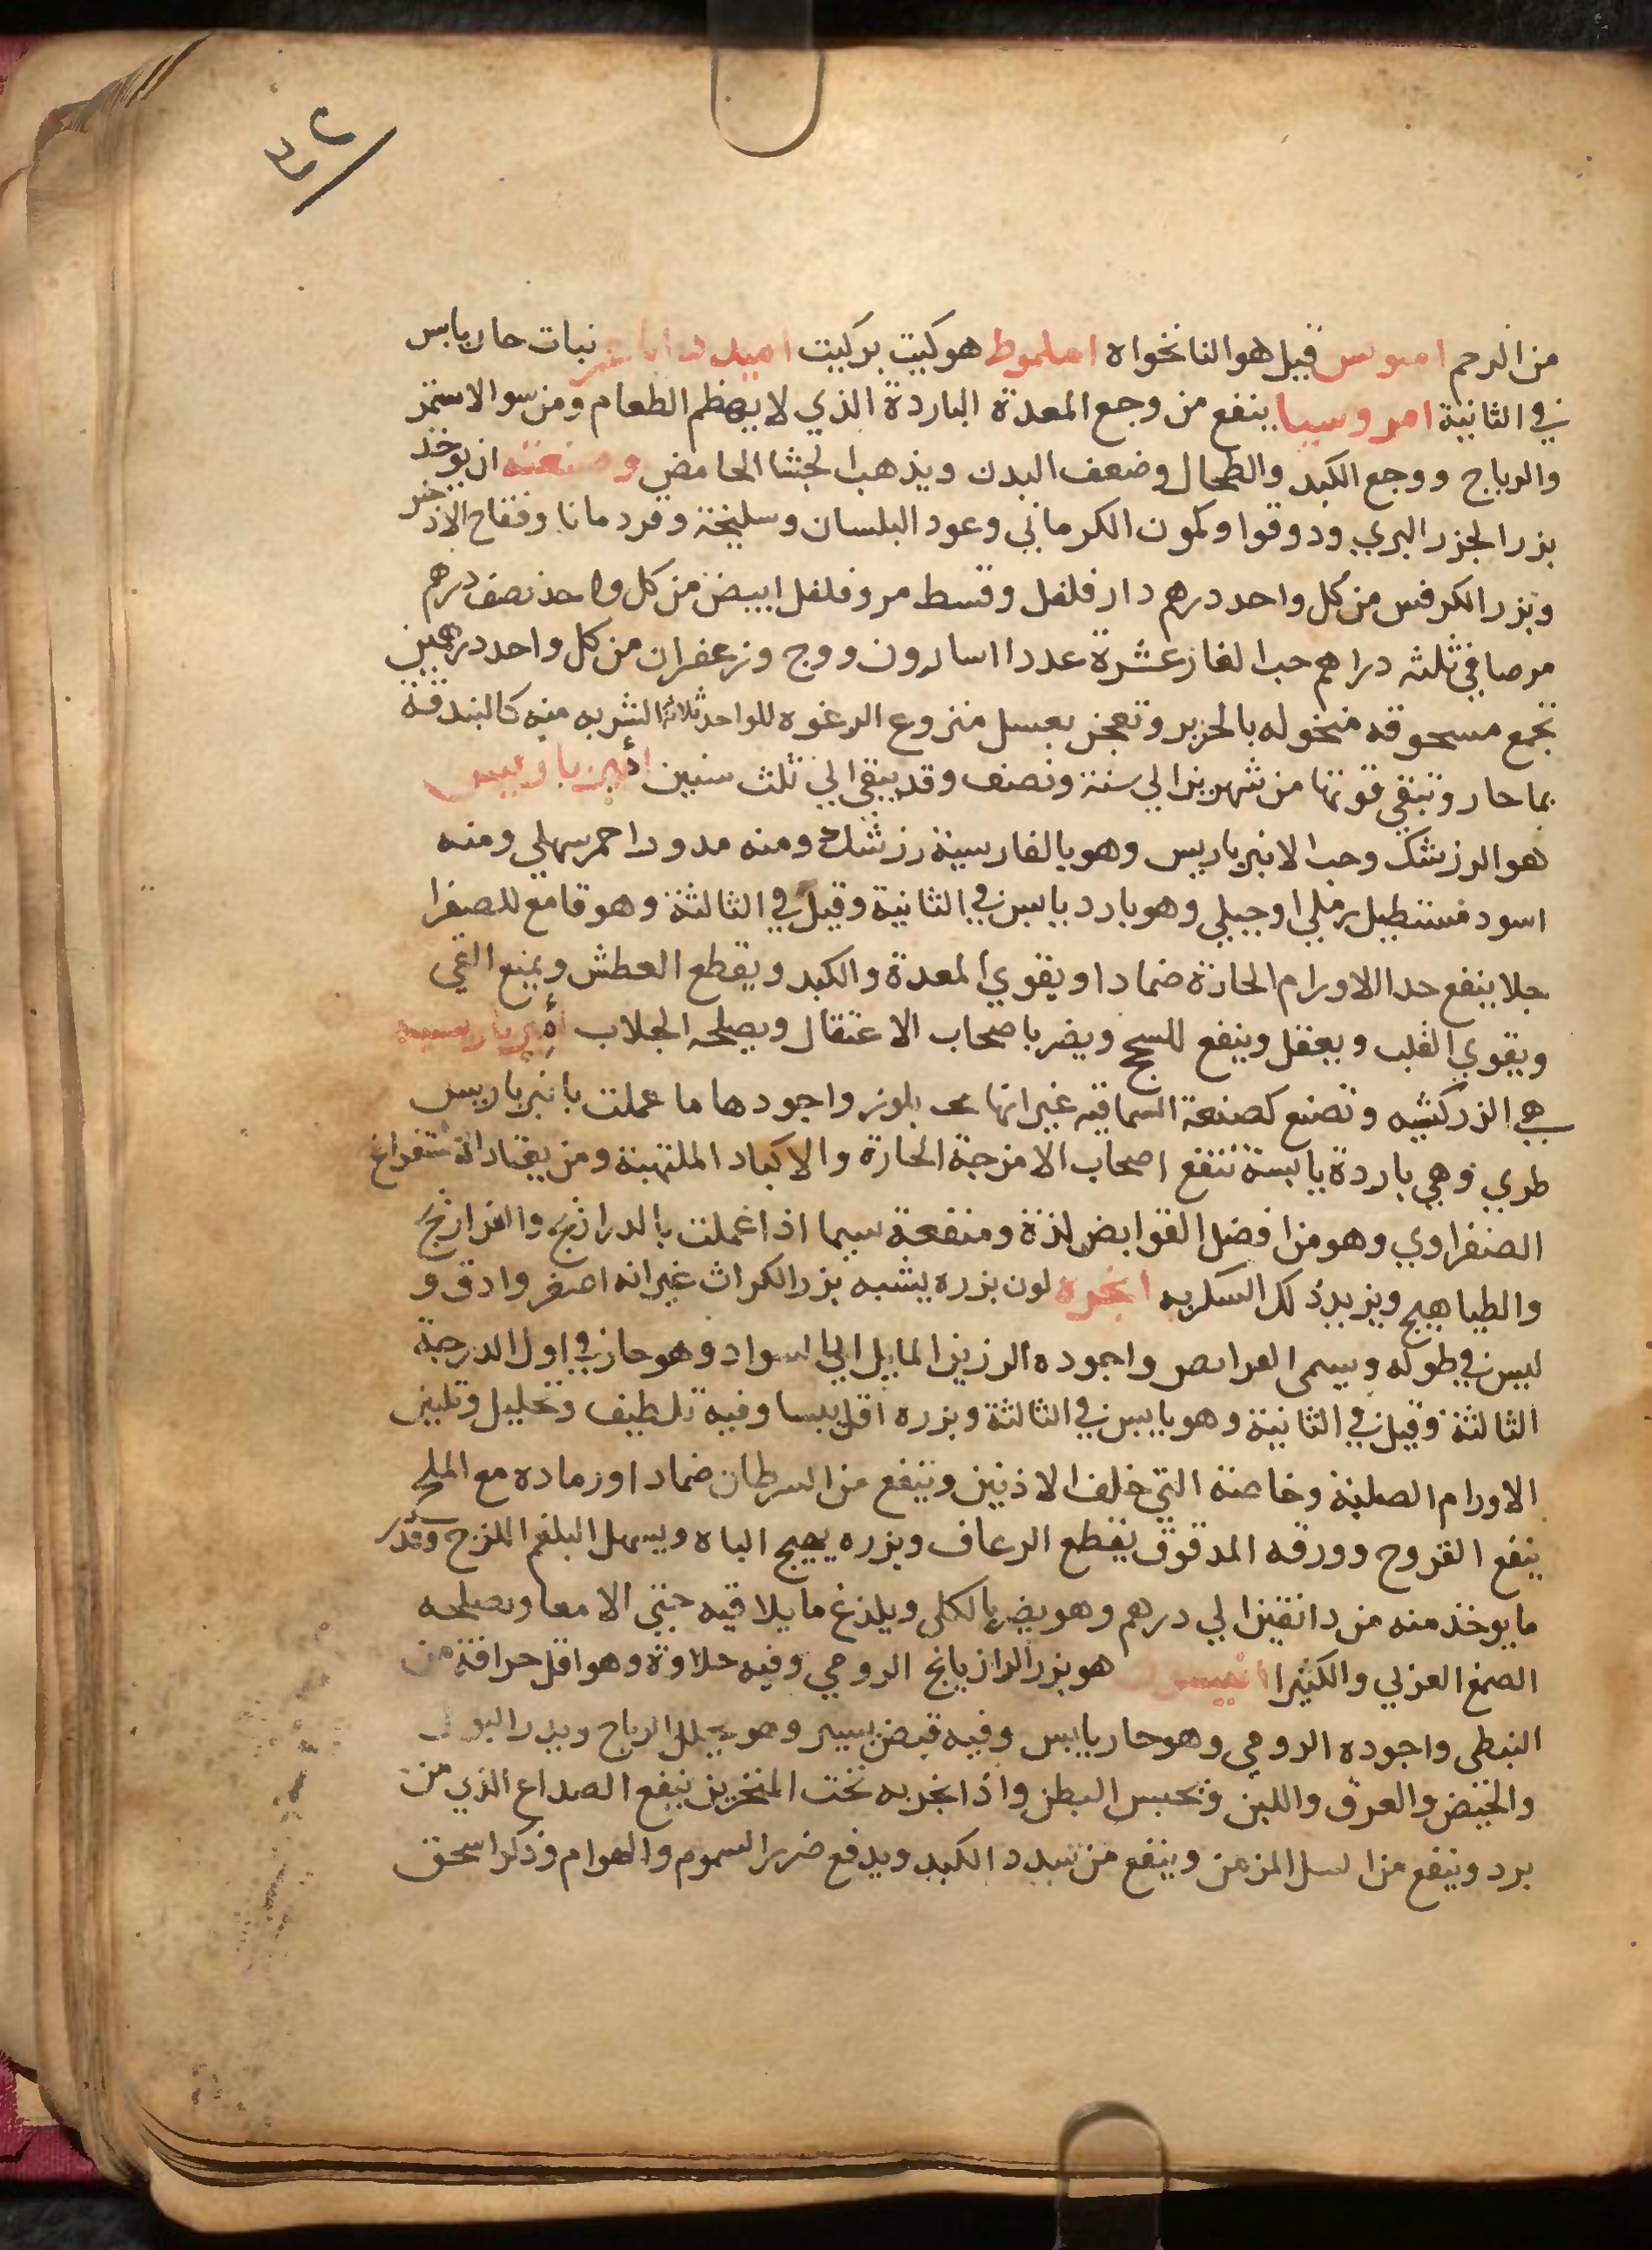 من الرحم اموس قيل هو النانخواه املموط هو كبيت بركبيت نبات حار يابس
في الثانية امروسيا ينفع من وجع المعدة الباردة الذي لا يهظم الطعام ومن سو الاستمر
والرياح ووجع الكبد والطحال وضعف البدن ويذهب الجشا الحامض وصنعته ان يوخذ
بزر الجزر البري ودوقوا وكمون الكرماني وعود البلسان وسليخة وقردمانا وفقاح الاذخر
وبزر الكرفس من كل واحد درهم دار فلفل وقسط مر وفلفل ابيض من كل واحد نصف درهم
مر صافي ثلثه دراهم حب الغار عشرة عددا اسارون ووج وزعفران من كل واحد درهمين
تجمع مسحوقه منخوله بالحرير وتعجن بعسل منزوع الرغوه للواحد ثلاثة الشربه منه كالبندقة
بما حار وتبقي قوتها من شهرين الي سنة ونصف وقد يبقي الي ثلث سنين أنبرباريس
هو الزرشك وحب الانبرباريس وهو بالفارسية زرشك ومنه مدور احمر سهلي ومنه
اسود مستطيل رملي او جبلي وهو بارد يابس في الثانية وقيل في الثالثة وهو قامع للصفرا
جلا ينفع حدا الاورام الحارة ضمادا ويقوي المعدة والكبد ويقطع العطش ويمنع القي
ويقوي القلب ويعقل وينفع للسحج ويضر باصحاب الاعتقال ويصلحه الجلاب أنبرباريسيه
هي الزركشيه وتصنع كصنعة السماقيه غير انها بلوز واجودها ما عملت بانبرباريس
طري وهي باردة يابسة تنفع اصحاب الامزجة الحارة والاكباد الملتهبة ومن يعتاد الاستفراغ
الصفراوي وهو من افضل القوابض لذة ومنفعة سيما اذا عملت بالدراريج والفراريج
والطياهيج ويزيد ذلك السكريه انجره لون بزره يشبه بزر الكراث غير انه اصفر وادق و
ليس في طوله ويسمى القرايص واجوده الرزين المايل الي السواد وهو حار في اول الدرجة
الثالثة وقيل في الثانية وهو يابس في الثالثة وبزره اقل يبسا وفيه تلطيف وتحليل وتليين
الاورام الصلبة وخاصة التي خلف الاذنين وينفع من السرطان ضمادا ورماده مع الملح
ينفع القروح وورقه المدقوق يقطع الرعاف وبزره يهيج الباه ويسهل البلغم اللزج وقدر
ما يوخذ منه من دانقين الي درهم وهو يضر بالكلى ويلذع ما يلاقيه حتي الامعا ويصلحه
الصمغ العربي والكثيرا انيسون هو بزر الرازيانج الرومي وفيه حلاوة وهو اقل حرافة من
النبطي واجوده الرومي وهو حار يابس وفيه قبض يسير وهو يحلل الرياح ويدر البول
والحيض والعرق واللبن ويحبس البطن واذا بخر به تحت المنخرين ينفع الصداع الذي من
برد وينفع من السل المزمن وينفع من سدد الكبد ويدفع ضرر السموم والهوام وذكر اسحق